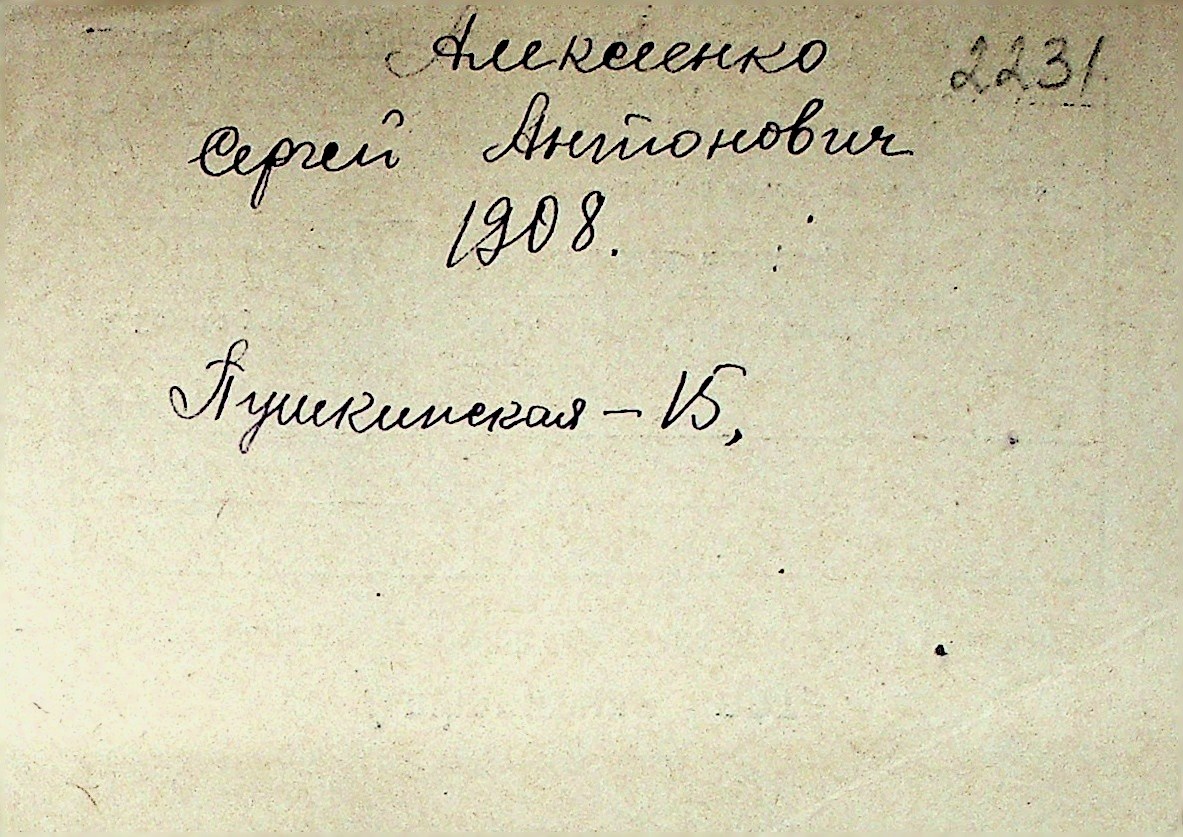 Алексеенко 2231
Сергей Антонович
1908.
Пушкинская – 15,